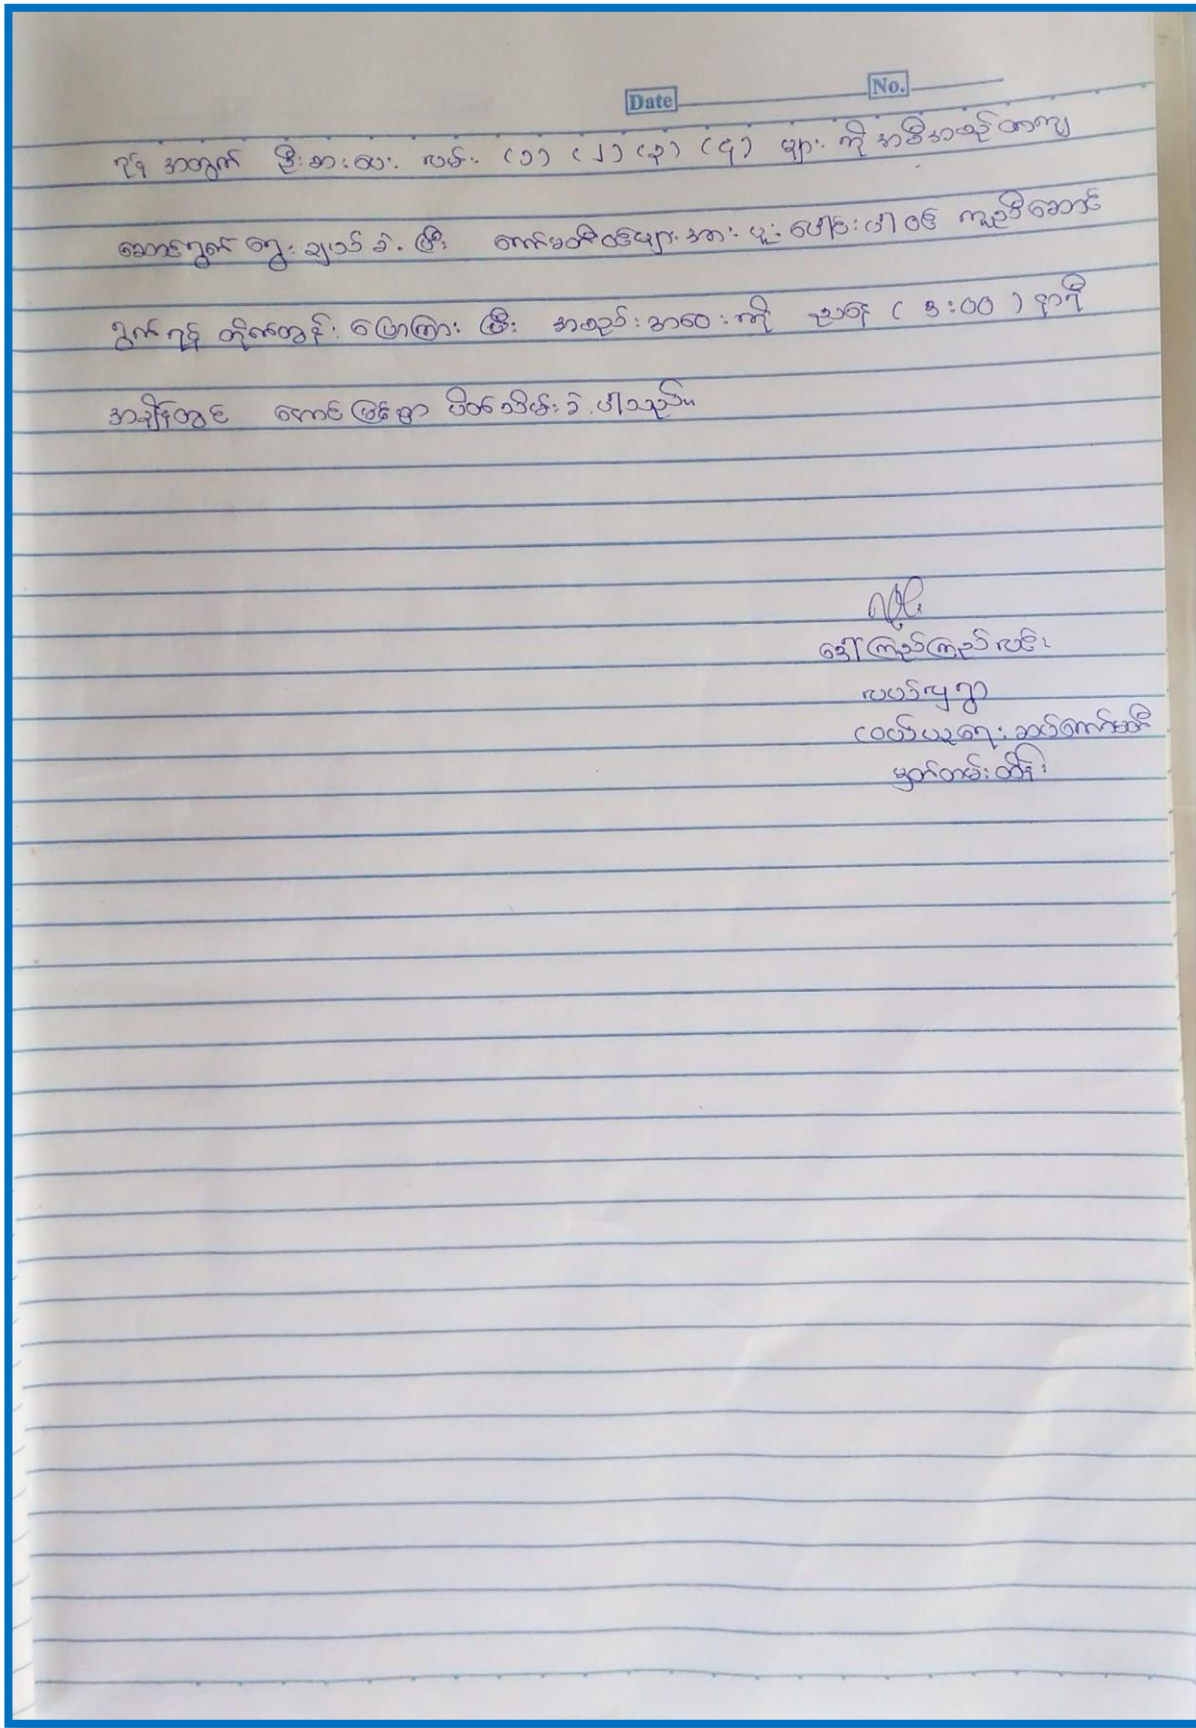 Date No.
ရန် အတွက် ဦးစားပေး လမ်း (၁) (၂) (၃) (၄) များ ကို အစီအစဉ် တကျ
ဆောင်ရွက် ရွေးချယ်ခဲ့ပြီး ကော်မတီဝင်များအား ပူးပေါင်းပါဝင် ကူညီဆောင်
ရွက်ရန် တိုက်တွန်း ပြောကြားပြီး အစည်းအဝေးကို ညနေ ( ၃:၀၀ ) နာရီ
အချိန်တွင် အောင်မြင်စွာ ပိတ်သိမ်းခဲ့ပါသည်။
ဒေါ်ကြည်ကြည်လင်း
လယ်လှရွာ
ဝယ်ယူရေးဆပ်ကော်မတီ
မှတ်တမ်းထိန်း